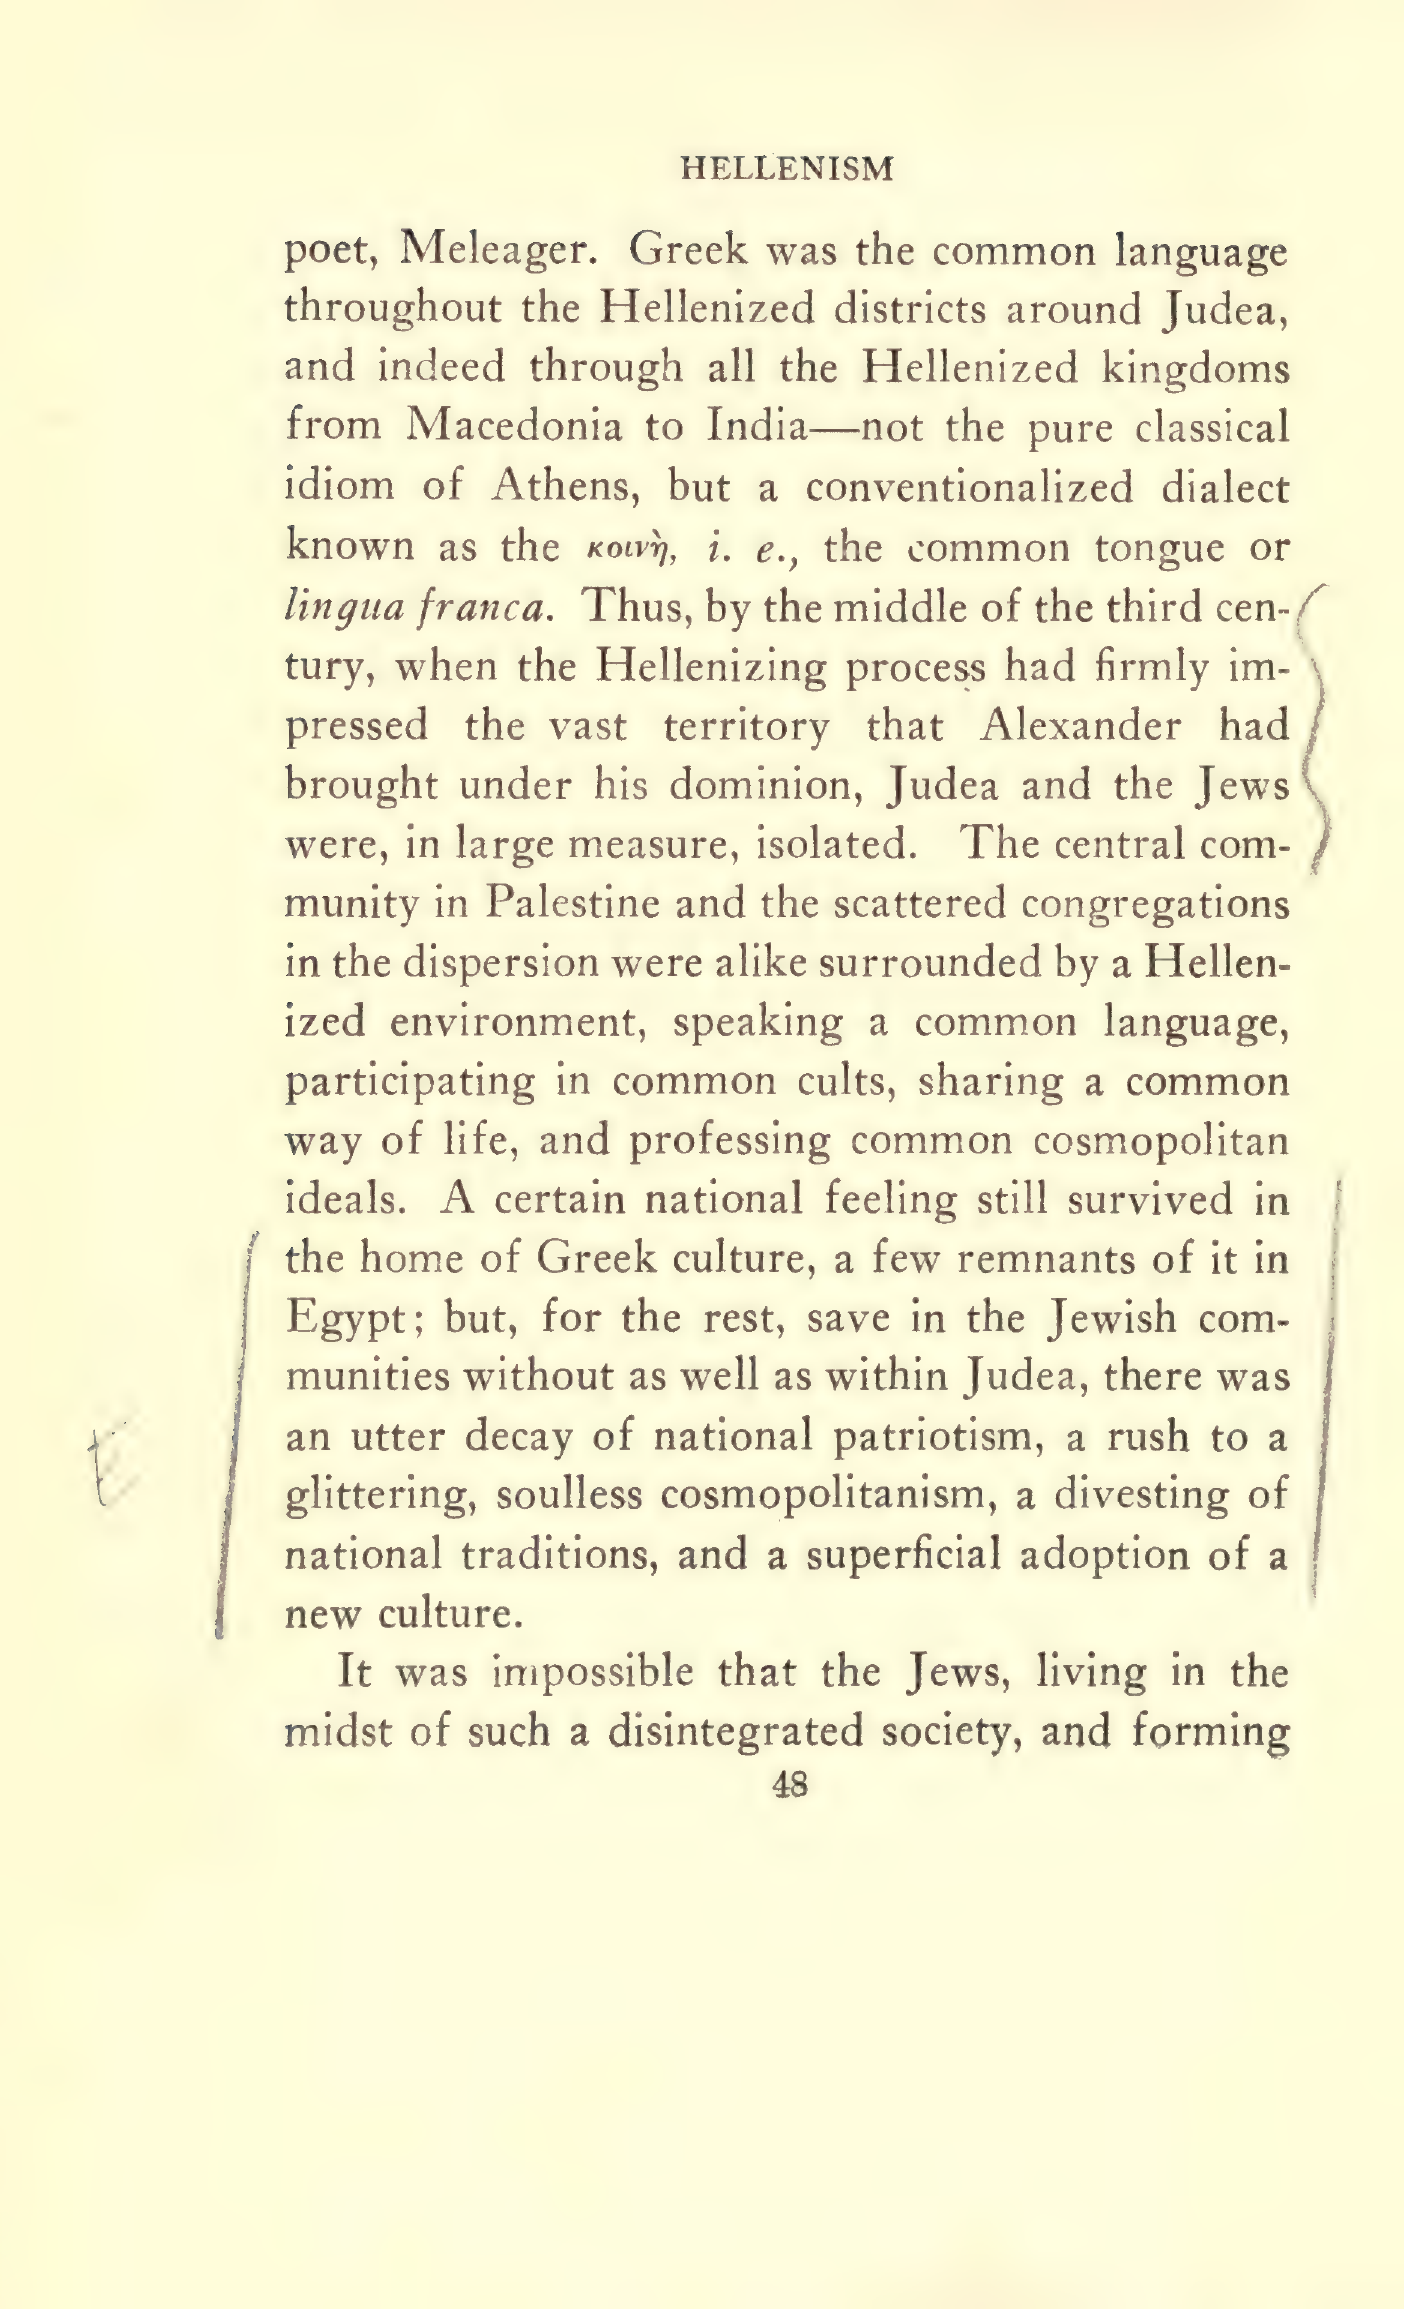 HELLENISM
poet, Meleager. Greek was the common language
throughout the Hellenized districts around Judea,
and indeed through all the Hellenized kingdoms
from Macedonia to India—not the pure classical
idiom of Athens, but a conventionalized dialect
known as the κοινὴ, i. e., the common tongue or
lingua franca. Thus, by the middle of the third cen-
tury, when the Hellenizing process had firmly im-
pressed the vast territory that Alexander had
brought under his dominion, Judea and the Jews
were, in large measure, isolated. The central com-
munity in Palestine and the scattered congregations
in the dispersion were alike surrounded by a Hellen-
ized environment, speaking a common language,
participating in common cults, sharing a common
way of life, and professing common cosmopolitan
ideals. A certain national feeling still survived in
the home of Greek culture, a few remnants of it in
Egypt; but, for the rest, save in the Jewish com-
munities without as well as within Judea, there was
an utter decay of national patriotism, a rush to a
glittering, soulless cosmopolitanism, a divesting of
national traditions, and a superficial adoption of a
new culture.
It was impossible that the Jews, living in the
midst of such a disintegrated society, and forming
48